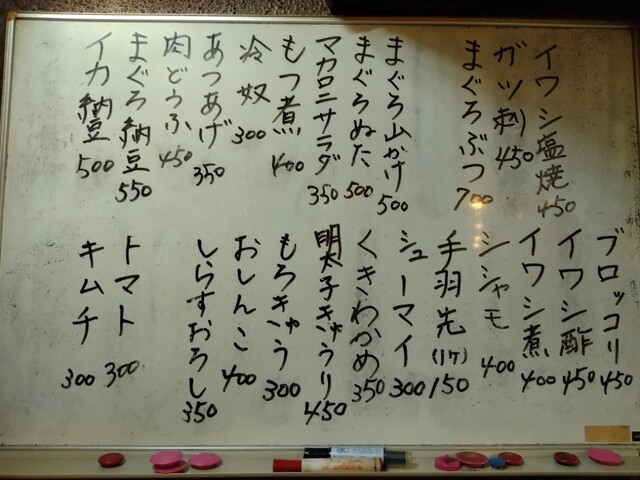 イワシ塩焼 450
ガツ刺 450
まぐろぶつ 700
まぐろ山かけ 500
まぐろぬた 500
マカロニサラダ 350
もつ煮 400
冷奴 300
あつあげ 350
肉どうふ 450
まぐろ納豆 550
イカ納豆 500
ブロッコリ 450
イワシ酢 450
イワシ煮 400
シシャモ 400
手羽先(1ケ) 150
シューマイ 300
くきわかめ 350
明太子きゅうり 450
もろきゅう 300
おしんこ 400
しらすおろし 350
トマト 300
キムチ 300